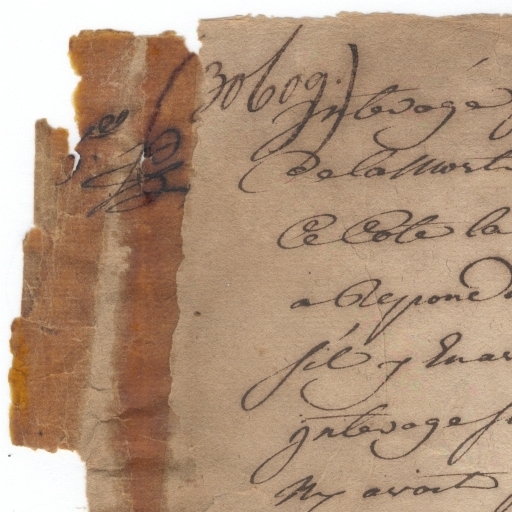 (30609.)
jntevogé
De la Mort
Ce Cote la
a Repond
sil y En av
jntevoge s
Ny avoit